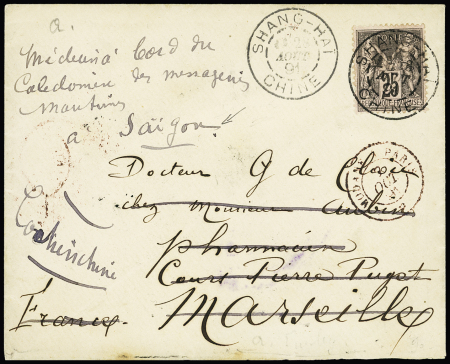 a.
Médecin à bord du
Calédonien des messageries
maritimes
a Saïgon
Cochinchine
SHANG-HAI
CHINE
25
SHANG-HAI
CHINE
PARIS
Docteur G de
chez Monsieur Aubin
pharmacien
Cours Pierre Puget
Marseille
France